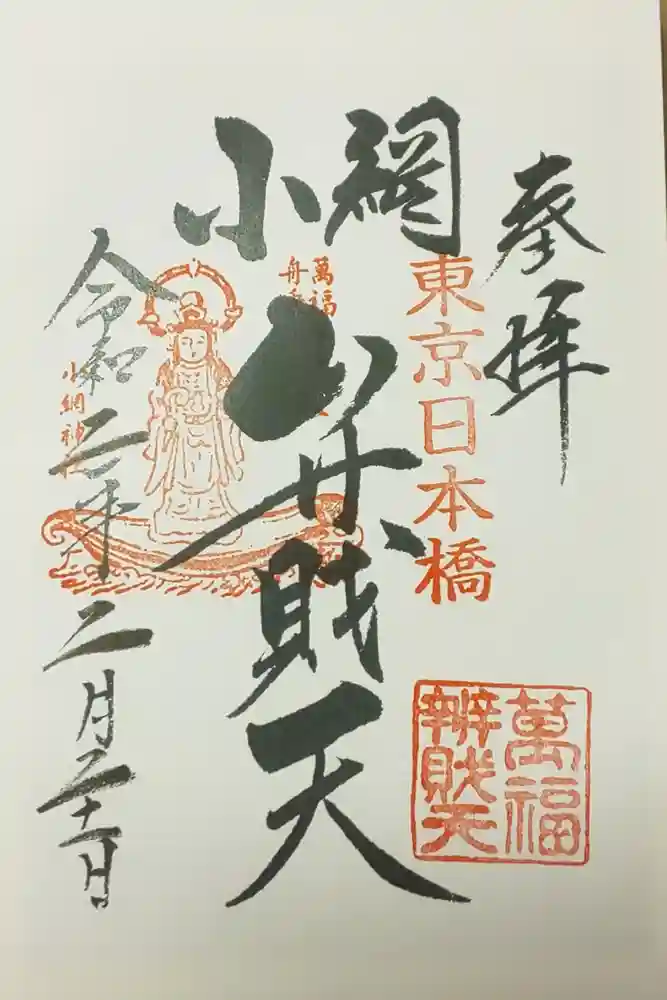 奉拝
東京日本橋
小網
弁財天
萬福
舟
小網神社
令和二年二月二十一日
萬福
辨財天